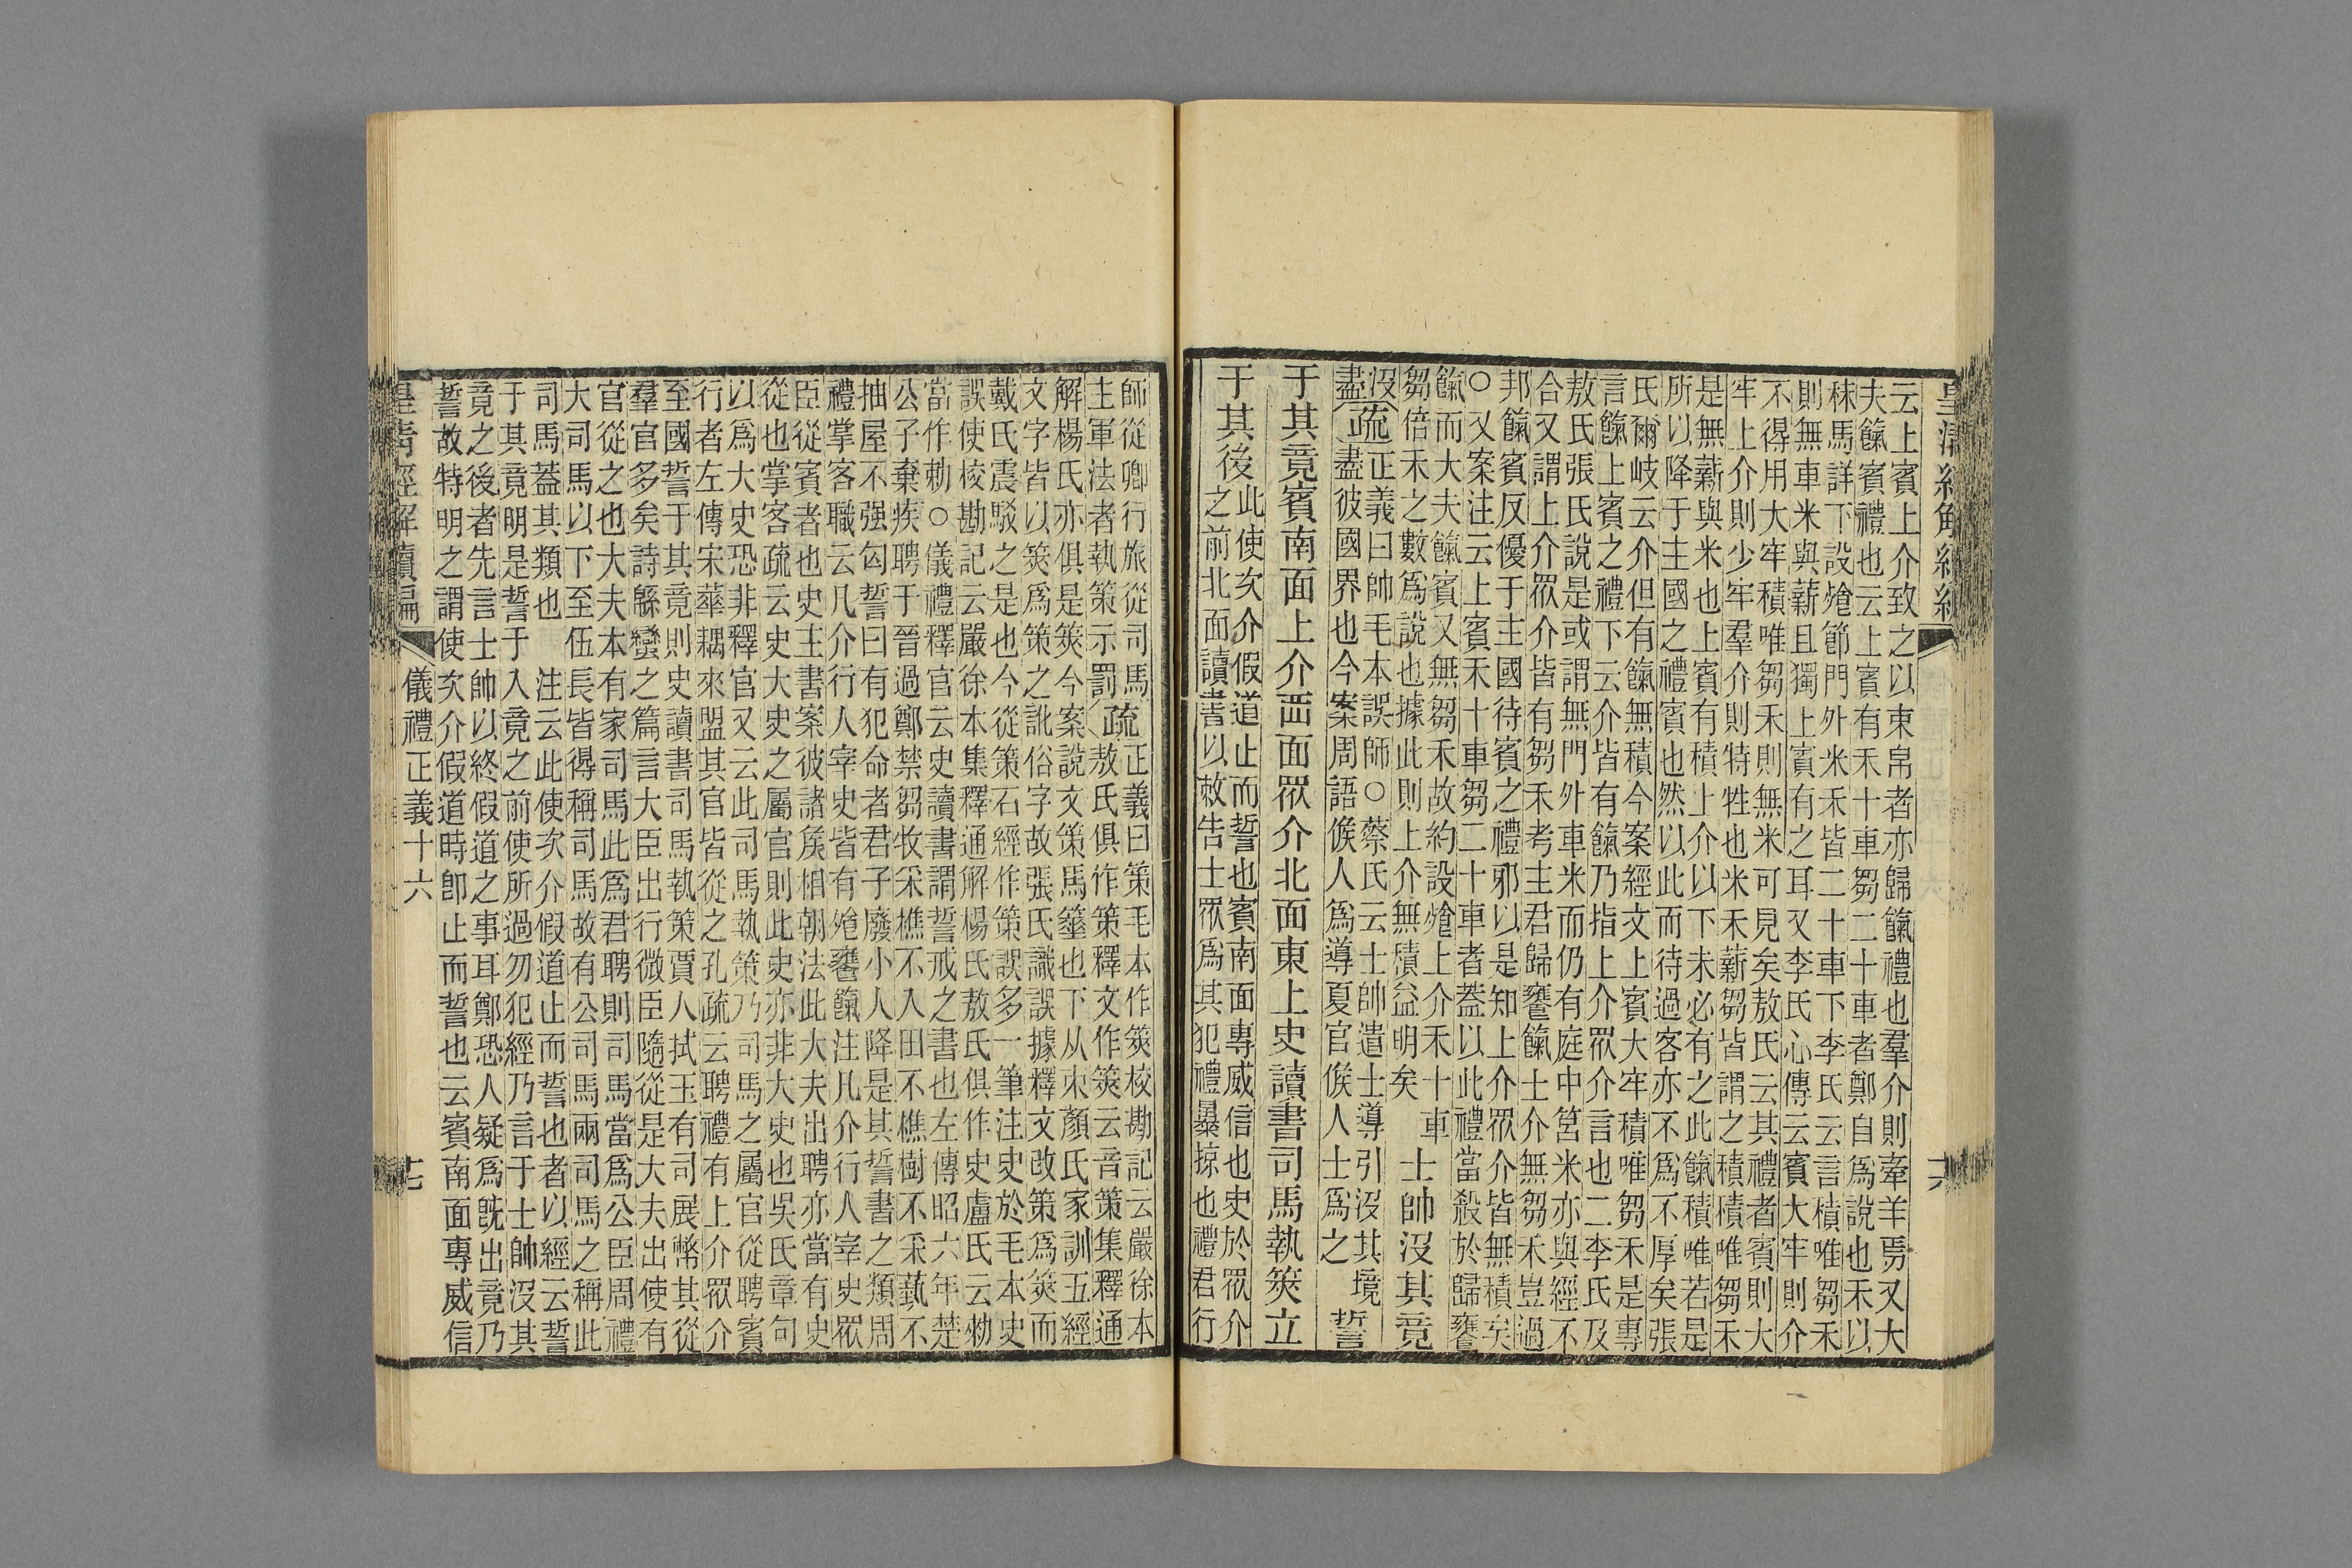 皇淸經解續編
云上賓上介致之以束帛者亦歸餼禮也羣介則牽羊焉又大
夫餼賓禮也云上賓有禾十車芻二十車者鄭自爲說也禾以
秣馬詳下設飧節門外米禾皆二十車下李氏云言積唯芻禾
則無車米與薪且獨上賓有之耳又李氏心傳云賓大牢則介
不得用大牢積唯芻禾則無米可見矣敖氏云其禮者賓則大
牢上介則少牢羣介則特牲也米禾薪芻皆謂之積積唯芻禾
是無薪與米也上賓有積上介以下未必有之此餼積唯若是
所以降于主國之禮賓也然以此而待過客亦不爲不厚矣張
氏爾岐云介但有餼無積今案經文上賓大牢積唯芻禾是專
言餼上賓之禮下云介皆有餼乃指上介眾介言也二李氏及
敖氏張氏說是或謂無門外車米而仍有庭中筥米亦與經不
合又謂上介眾介皆有芻禾考主君歸饔餼士介無芻禾豈過
邦餼賓反優于主國待賓之禮邪以是知上介眾介皆無積矣
○又案注云上賓禾十車芻二十車者蓋以此禮當殺於歸饔
餼而大夫餼賓又無芻禾故約設飧上介禾十車
芻倍禾之數爲說也據此則上介無積益明矣
士帥沒其竟
沒
盡
疏
正義曰帥毛本誤師○蔡氏云士帥遣士導引沒其境
盡彼國界也今案周語候人爲導夏官候人士爲之
誓
于其竟賓南面上介西面眾介北面東上史讀書司馬執筴立
于其後
此使次介假道止而誓也賓南面專威信也史於眾介
之前北面讀書以敕告士眾爲其犯禮暴掠也禮君行
十六
師從卿行旅從司馬
主軍法者執策示罰
疏
正義曰策毛本作筴校勘記云嚴徐本
敖氏俱作策釋文作筴云音策集釋通
解楊氏亦俱是筴今案說文策馬箠也下从朿顏氏家訓五經
文字皆以筴爲策之訛俗字故張氏識誤據釋文改策爲筴而
戴氏震駁之是也今從策石經作策誤多一筆注史於毛本史
誤使校勘記云嚴徐本集釋通解楊氏敖氏俱作史盧氏云勑
當作勅○儀禮釋官云史讀書謂誓戒之書也左傳昭六年楚
公子棄疾聘于晉過鄭禁芻牧采樵不入田不樵樹不采蓺不
抽屋不强匄誓曰有犯命者君子廢小人降是其誓書之類周
禮掌客職云凡介行人宰史皆有飧饔餼注凡介行人宰史眾
臣從賓者也史主書案彼諸矦相朝法此大夫出聘亦當有史
從也掌客疏云史大史之屬官則此史亦非大史也吳氏章句
以爲大史恐非釋官又云此司馬執策乃司馬之屬官從聘賓
行者左傳宋華耦來盟其官皆從之孔疏云聘禮有上介眾介
至國誓于其竟則史讀書司馬執策賈人拭玉有司展幣其從
羣官多矣詩緜蠻之篇言大臣出行微臣隨從是大夫出使有
官從之也大夫本有家司馬此爲君聘則司馬當爲公臣周禮
大司馬以下至伍長皆得稱司馬故有公司馬兩司馬之稱此
司馬蓋其類也　注云此使次介假道止而誓也者以經云誓
于其竟明是誓于入竟之前使所過勿犯經乃言于士帥沒其
竟之後者先言士帥以終假道之事耳鄭恐人疑爲旣出竟乃
誓故特明之謂使次介假道時卽止而誓也云賓南面專威信
皇清經解續編
儀禮正義十六
十七